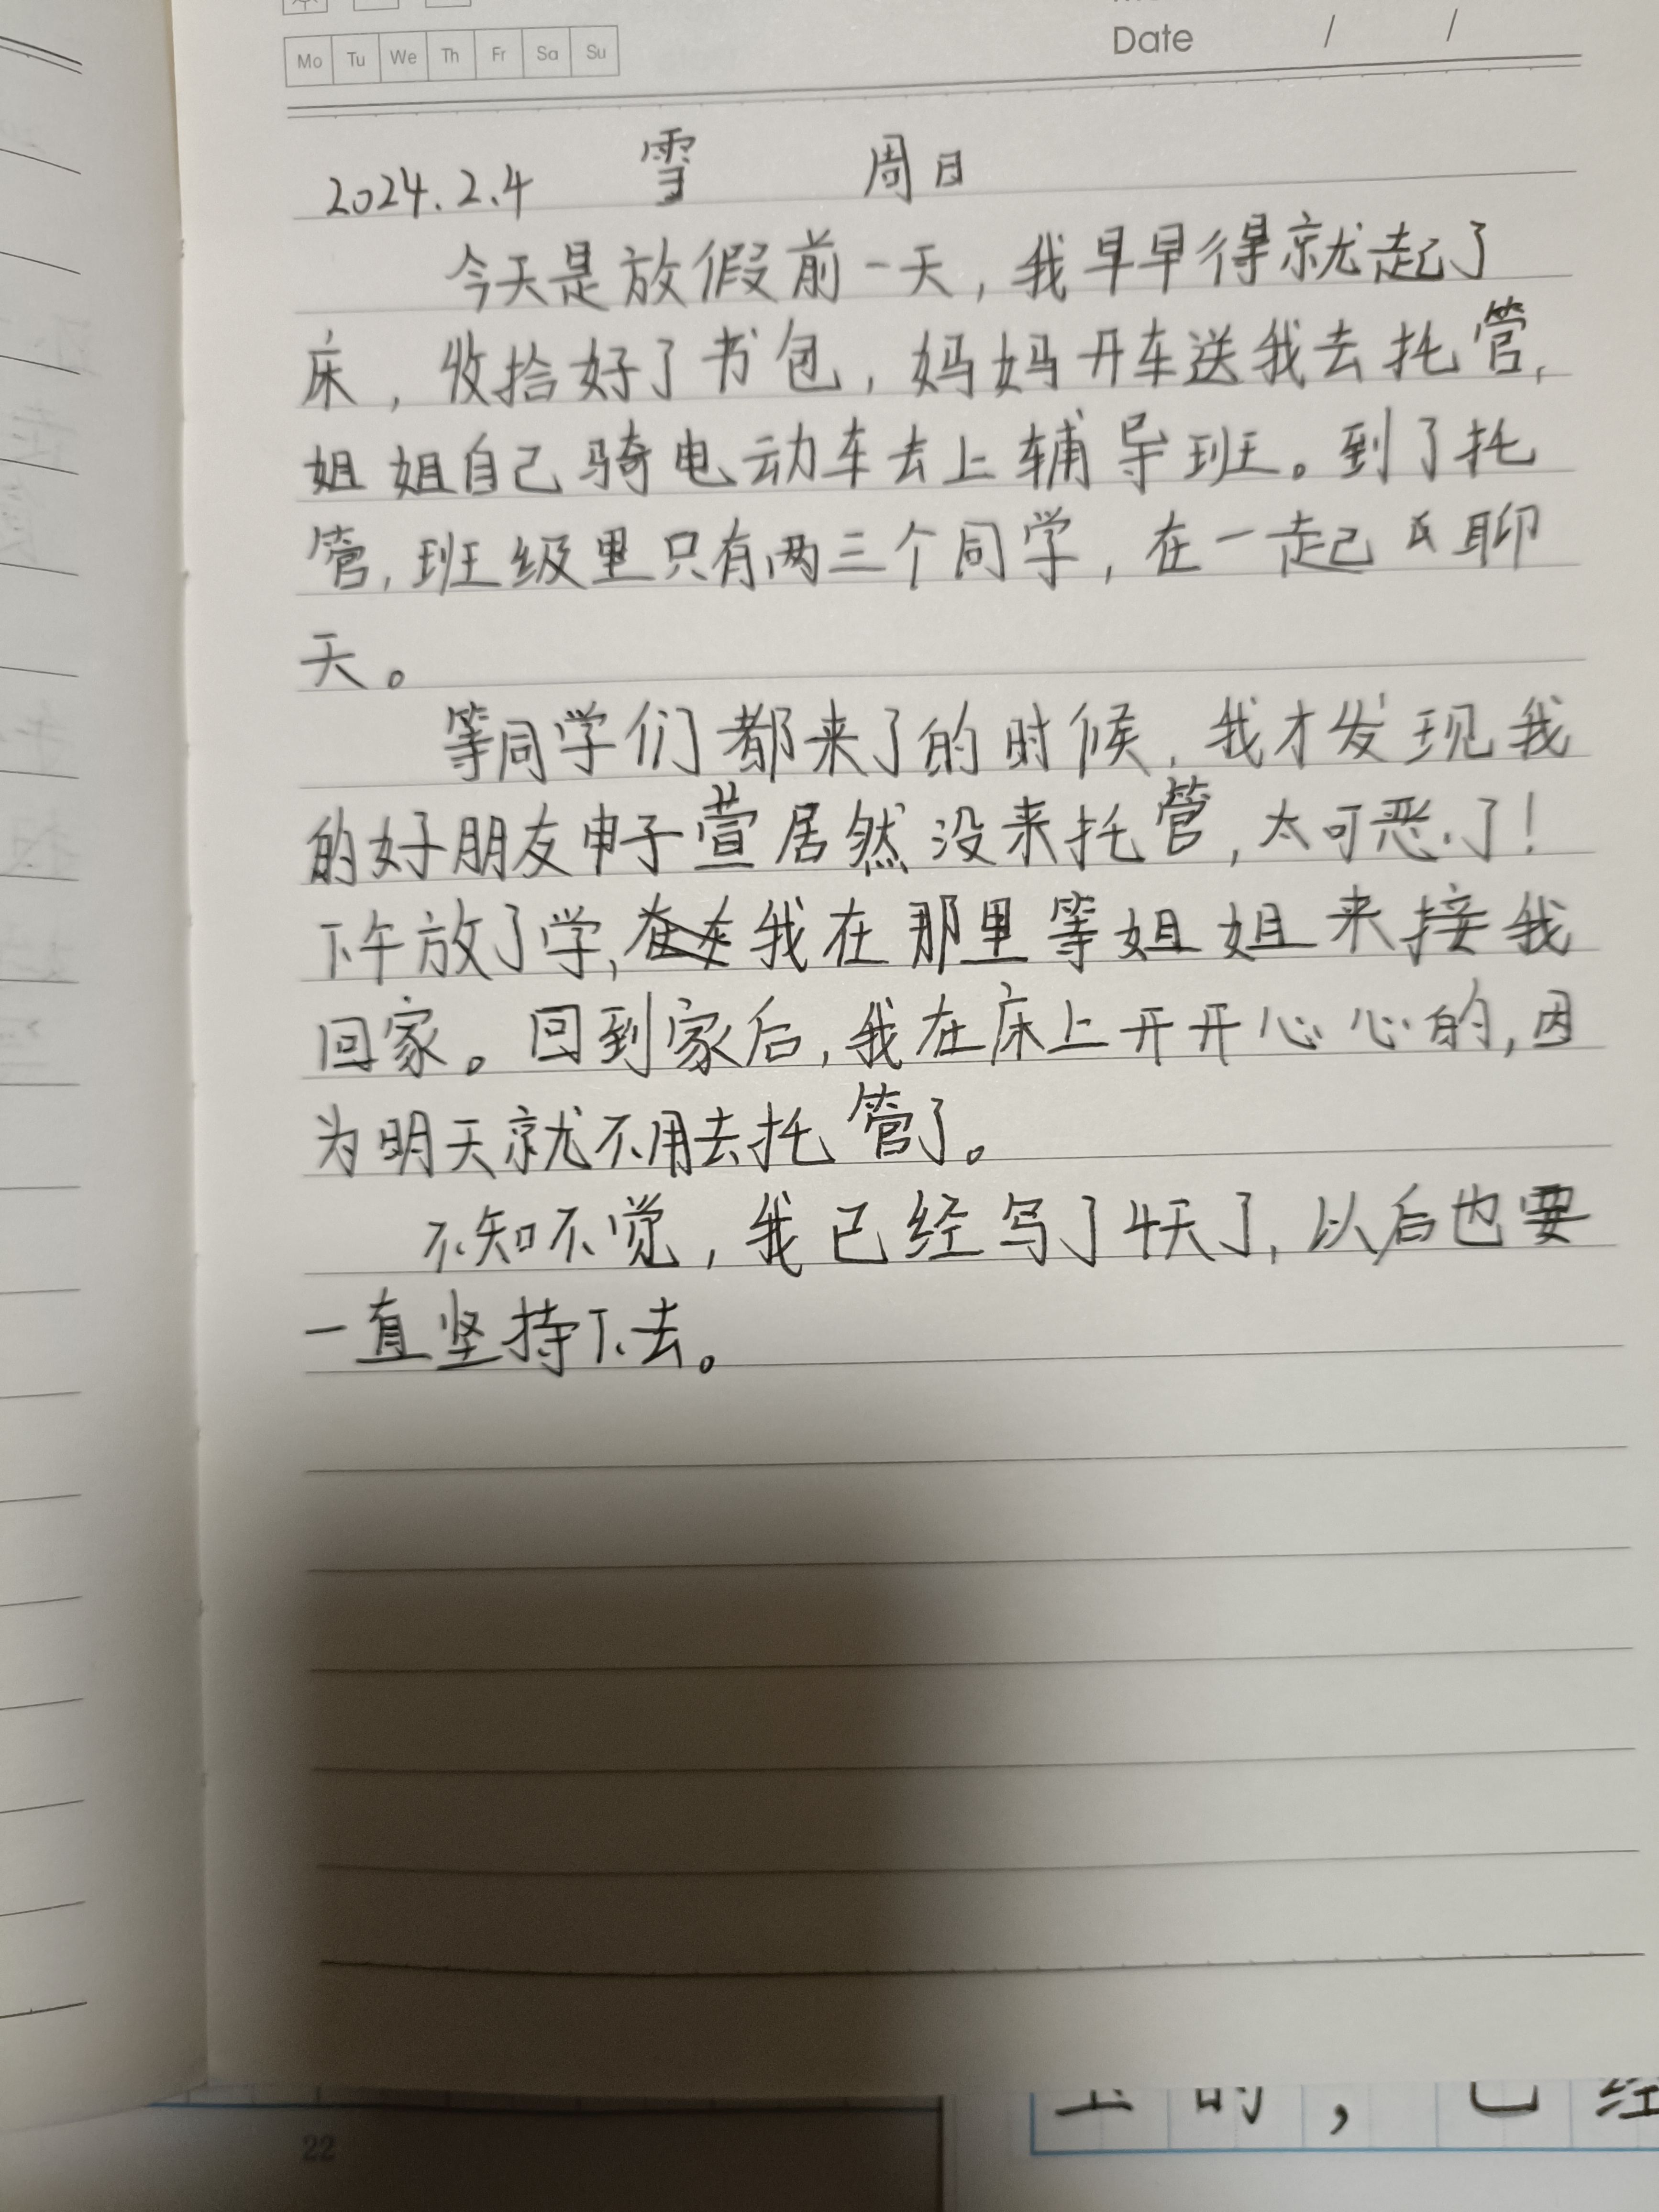 Mo Tu We Th Fr Sa Su
Date / /
2024.2.4 雪 周日
今天是放假前一天，我早早得就起了
床，收拾好了书包，妈妈开车送我去托管，
姐姐自己骑电动车去上辅导班。到了托
管，班级里只有两三个同学，在一起聊
天。
等同学们都来了的时候，我才发现我
的好朋友申子萱居然没来托管，太可恶了！
下午放了学，我在那里等姐姐来接我
回家。回到家后，我在床上开开心心的，因
为明天就不用去托管了。
不知不觉，我已经写了4天了，以后也要
一直坚持下去。
22
上的，已经